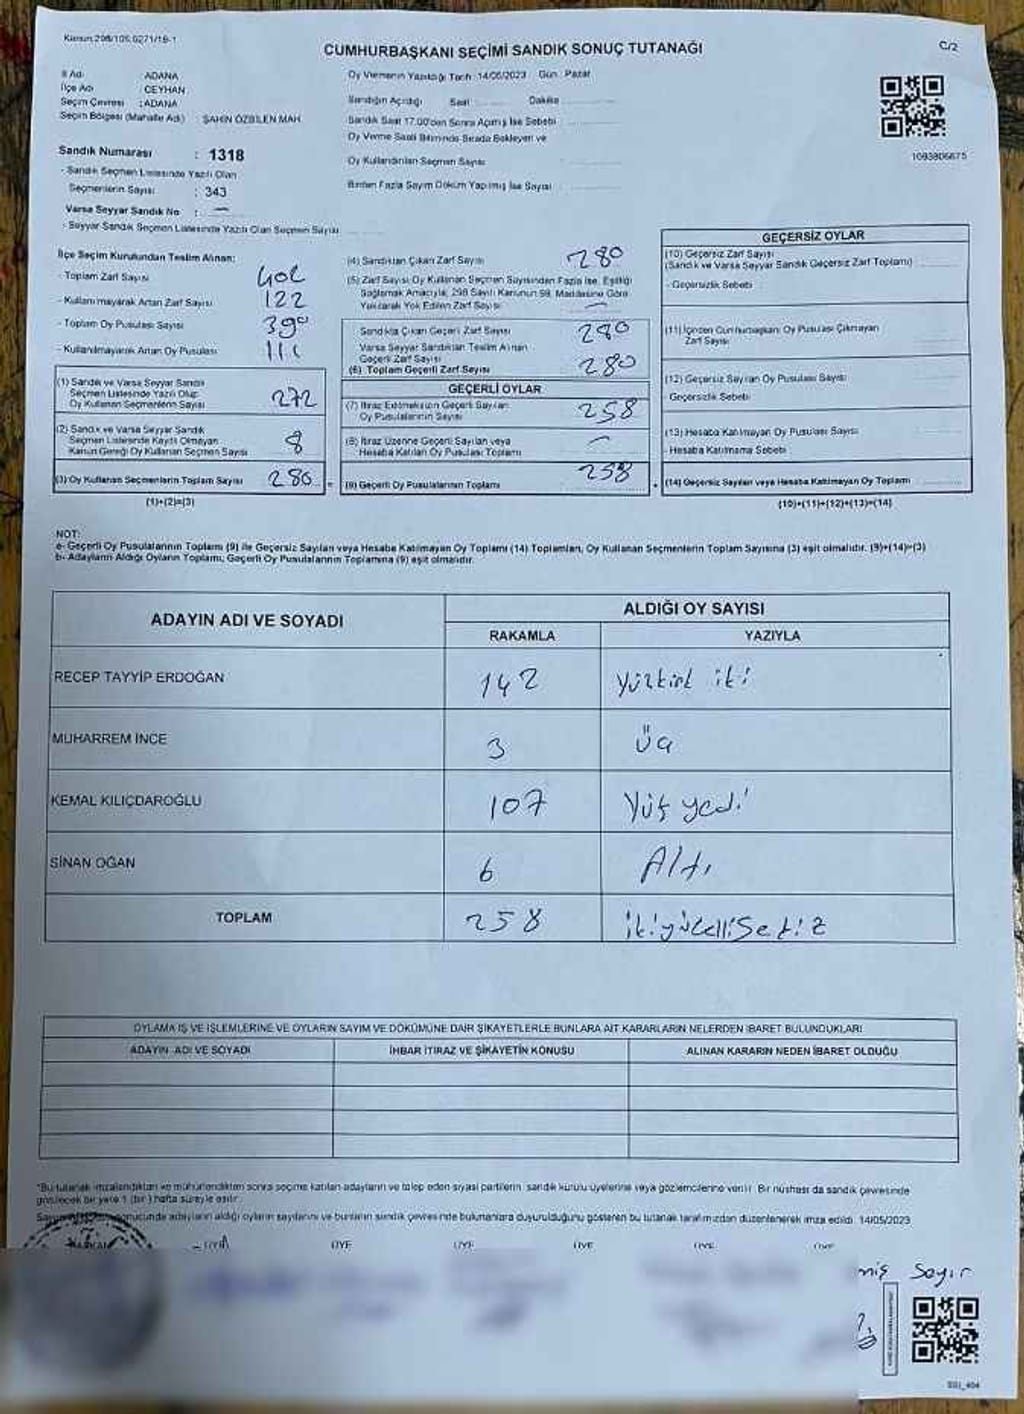 Kanun:298/105,6271/19-1
CUMHURBAŞKANI SEÇİMİ SANDIK SONUÇ TUTANAĞI
C/2
İl Adı ADANA
İlçe Adı CEYHAN
Seçim Çevresi : ADANA
Seçim Bölgesi (Mahalle Adı) ŞAHİN ÖZBİLEN MAH
Sandık Numarası : 1318
- Sandık Seçmen Listesinde Yazılı Olan
Seçmenlerin Sayısı : 343
Varsa Seyyar Sandık No : —
- Seyyar Sandık Seçmen Listesinde Yazılı Olan Seçmen Sayısı
Oy Vermenin Yapıldığı Tarih : 14/05/2023 Gün : Pazar
Sandığın Açıldığı Saat Dakika
Sandık Saat 17.00'den Sonra Açılmış İse Sebebi
Oy Verme Saati Bitiminde Sırada Bekleyen ve
Oy Kullandırılan Seçmen Sayısı
Birden Fazla Sayım Döküm Yapılmış İse Sayısı
1093806675
İlçe Seçim Kurulundan Teslim Alınan:
- Toplam Zarf Sayısı 402
- Kullanılmayarak Artan Zarf Sayısı 122
- Toplam Oy Pusulası Sayısı 390
- Kullanılmayarak Artan Oy Pusulası
(1) Sandık ve Varsa Seyyar Sandık
Seçmen Listesinde Yazılı Olup
Oy Kullanan Seçmenlerin Sayısı 272
(2) Sandık ve Varsa Seyyar Sandık
Seçmen Listesinde Kayıtlı Olmayan
Kanun Gereği Oy Kullanan Seçmen Sayısı 8
(3) Oy Kullanan Seçmenlerin Toplam Sayısı 280
(1)+(2)=(3)
(4) Sandıktan Çıkan Zarf Sayısı 280
(5) Zarf Sayısı Oy Kullanan Seçmen Sayısından Fazla İse, Eşitliği
Sağlamak Amacıyla, 298 Sayılı Kanunun 98. Maddesine Göre
Yakılarak Yok Edilen Zarf Sayısı —
Sandıkta Çıkan Geçerli Zarf Sayısı 280
Varsa Seyyar Sandıktan Teslim Alınan
Geçerli Zarf Sayısı
(6) Toplam Geçerli Zarf Sayısı 280
GEÇERLİ OYLAR
(7) İtiraz Edilmeksizin Geçerli Sayılan
Oy Pusulalarının Sayısı 258
(8) İtiraz Üzerine Geçerli Sayılan veya
Hesaba Katılan Oy Pusulası Toplamı —
(9) Geçerli Oy Pusulalarının Toplamı 258
GEÇERSİZ OYLAR
(10) Geçersiz Zarf Sayısı
(Sandık ve Varsa Seyyar Sandık Geçersiz Zarf Toplamı)
- Geçersizlik Sebebi
(11) İçinden Cumhurbaşkanı Oy Pusulası Çıkmayan
Zarf Sayısı
(12) Geçersiz Sayılan Oy Pusulası Sayısı
- Geçersizlik Sebebi
(13) Hesaba Katılmayan Oy Pusulası Sayısı
- Hesaba Katılmama Sebebi
(14) Geçersiz Sayılan veya Hesaba Katılmayan Oy Toplamı
(10)+(11)+(12)+(13)=(14)
NOT:
a- Geçerli Oy Pusulalarının Toplamı (9) ile Geçersiz Sayılan veya Hesaba Katılmayan Oy Toplamı (14) Toplamları, Oy Kullanan Seçmenlerin Toplam Sayısına (3) eşit olmalıdır. (9)+(14)=(3)
b- Adayların Aldığı Oyların Toplamı, Geçerli Oy Pusulalarının Toplamına (9) eşit olmalıdır.
ADAYIN ADI VE SOYADI ALDIĞI OY SAYISI
RAKAMLA YAZIYLA
RECEP TAYYİP ERDOĞAN 142 Yüzkırk iki
MUHARREM İNCE 3 üç
KEMAL KILIÇDAROĞLU 107 Yüz yedi
SİNAN OĞAN 6 Altı
TOPLAM 258 ikiyüzelliSekiz
OYLAMA İŞ VE İŞLEMLERİNE VE OYLARIN SAYIM VE DÖKÜMÜNE DAİR ŞİKAYETLERLE BUNLARA AİT KARARLARIN NELERDEN İBARET BULUNDUKLARI
ADAYIN ADI VE SOYADI İHBAR İTİRAZ VE ŞİKAYETİN KONUSU ALINAN KARARIN NEDEN İBARET OLDUĞU
*Bu tutanak imzalandıktan ve mühürlendikten sonra seçime katılan adayların ve talep eden siyasi partilerin sandık kurulu üyelerine veya gözlemcilerine verilir. Bir nüshası da sandık çevresinde
görülecek bir yere 1 (bir) hafta süreyle asılır.
sonucunda adayların aldığı oyların sayılarını ve bunların sandık çevresinde bulunanlara duyurulduğunu gösteren bu tutanak tarafımızdan düzenlenerek imza edildi. 14/05/2023
BAŞKAN ÜYE ÜYE ÜYE ÜYE ÜYE ÜYE